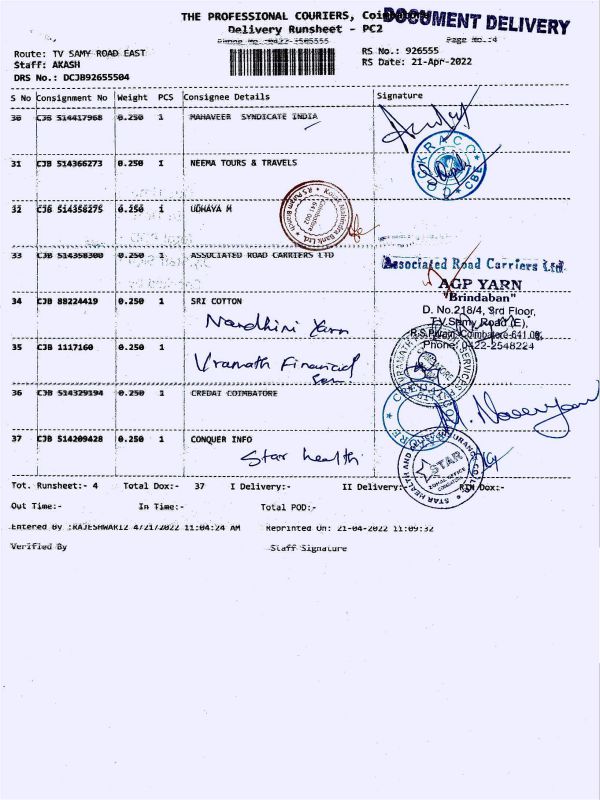 THE PROFESSIONAL COURIERS,
DOCUMENT DELIVERY
Delivery Runsheet - PC2
Page No.:4
Route: TV SAMY ROAD EAST
RS No.: 926555
Staff: AKASH
RS Date: 21-Apr-2022
DRS No.: DCJB92655504
S No Consignment No Weight PCS Consignee Details Signature
30 CJB 514417968 0.250 1 MAHAVEER SYNDICATE INDIA
31 CJB 514366273 0.250 1 NEEMA TOURS & TRAVELS
32 CJB 514356275 0.250 1 UDHAYA M
33 CJB 514358300 0.250 1 ASSOCIATED ROAD CARRIERS LTD
Associated Road Carriers Ltd
AGP YARN
"Brindaban"
34 CJB 88224419 0.250 1 SRI COTTON
D. No.218/4, 3rd Floor,
Nandhini Yarn
T.V.Samy Road (E),
R.S.Puram, Coimbatore-641 00
35 CJB 1117160 0.250 1
Phone: 0422-2548224
Financial
36 CJB 514329194 0.250 1 CREDAI COIMBATORE
37 CJB 514209428 0.250 1 CONQUER INFO
Star health
STAR
Tot. Runsheet:- 4 Total Dox:- 37 I Delivery:- II Delivery:- Dox:-
Out Time:- In Time:- Total POD:-
Entered By :RAJESHWARI2 4/21/2022 11:04:24 AM Reprinted On: 21-04-2022 11:09:32
Verified By Staff Signature